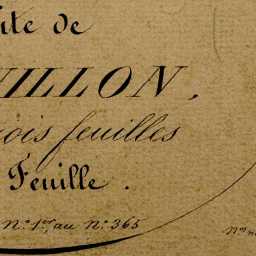 ite de
VILLON,
ois feuilles
Feuille.
N.º 1.er au N.º 365